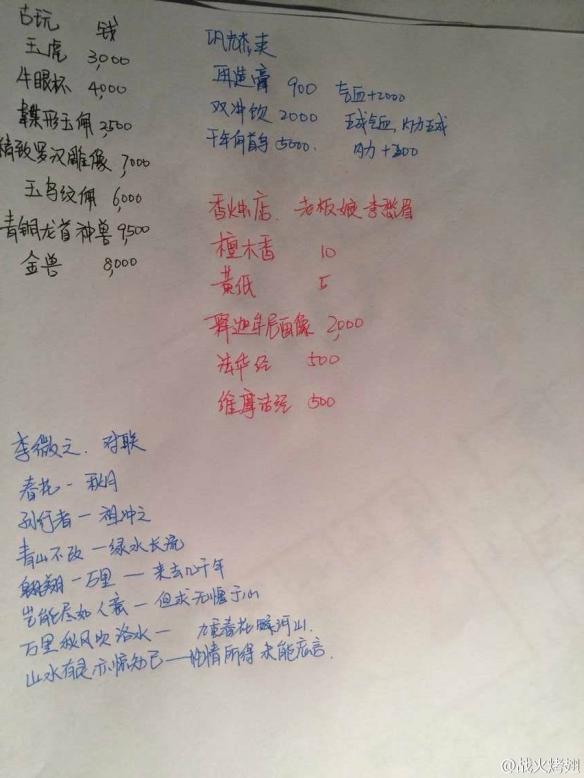 古玩 钱
玉虎 3,000
牛眼杯 4,000
蝶形玉佩 2,500
精致罗汉雕像 7,000
玉鸟纹佩 6,000
青铜龙首神兽 9,500
金兽 8,000
再造膏 900 气血+2000
双冲饮 2000 五成气血,内力五成
千年何首乌 5000. 内力+300
香烛店. 老板娘李愁眉
檀木香 10
黄纸 5
释迦牟尼画像 2,000
法华经 500
维摩诘经 500
李微之. 对联
春花-秋月
孙行者-祖冲之
青山不改-绿水长流
翱翔一万里—来去几千年
岂能尽如人意-但求无愧于心
万里秋风吹洛水-九重春花暖河山.
山水有灵亦惊知己—性情所得未能忘言.
@战火烤翅